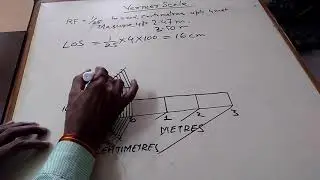 Vernier Scale
RF = 1/25 to read centimetres upto 4 mt
Measure upto 2.47 m.
2.50 m
LOS = 1/25 × 4 × 100 = 16 cm
0 1 2 3
METRES
CENTIMETRES